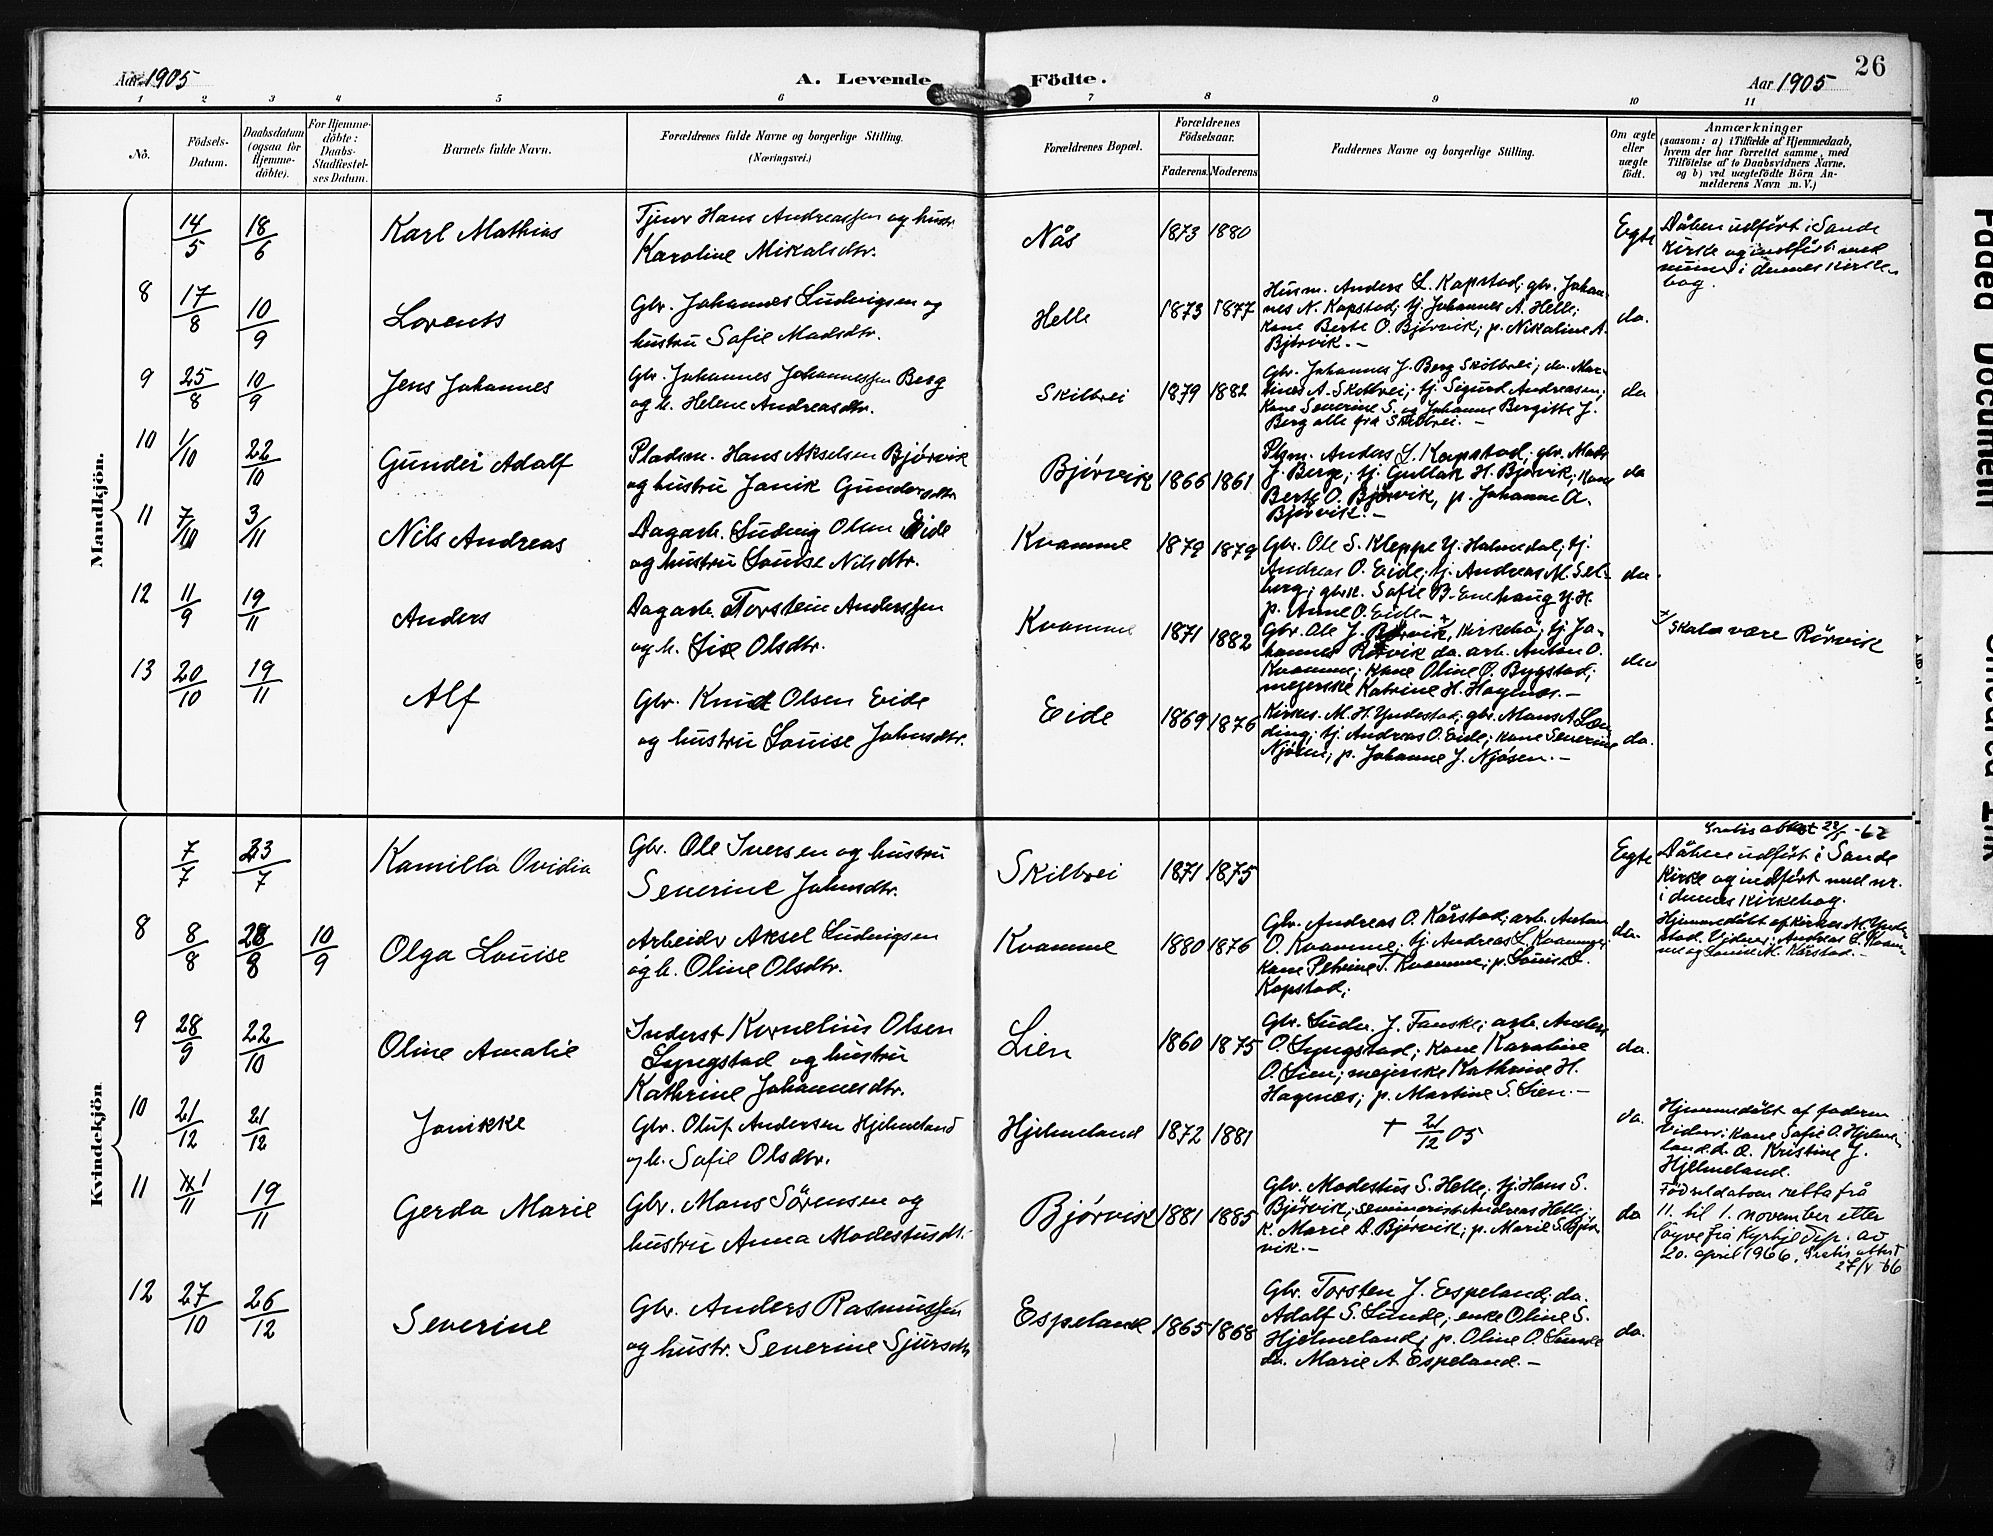 Aar 1905
A. Levende Födte.
Aar 1905
26
1 2 3 4 5 6 7 8 9 10 11
No.
Födsels-Datum.
Daabsdatum (ogsaa for Hjemmedöbte).
For Hjemmedöbte: Daabs-Stadfæstelses Datum.
Barnets fulde Navn.
Forældrenes fulde Navne og borgerlige Stilling.
(Næringsvei.)
Forældrenes Bopæl.
Forældrenes Födselsaar.
Faderens. Moderens
Faddernes Navne og borgerlige Stilling.
Om ægte eller uægte födt.
Anmærkninger
(saasom: a) i Tilfælde af Hjemmedaab, hvem der har forrettet samme, med Tilföielse af to Daabsvidners Navne, og b) ved uægtefödte Börn Anmelderens Navn m. V.)
Mandkjön.
14/5 18/6 Karl Mathias
Tjener Hans Andreassen og hustr.
Karoline Mikalsdtr.
Nås 1873 1880 Egte
Dåben udført i Sande
Kirke og indført med
numer i dennes kirke
bog.
8 17/8 10/9 Lorents
Gbr. Johannes Ludvigsen og
hustru Sofie Madsdtr.
Helle 1873 1877
Husm. Anders L. Kapstad; gbr. Johan-
nes N. Kapstad; tj. Johannes A. Helle;
kone Berte O. Bjørvik; p. Nikoline A.
Bjørvik. —
do.
9 25/8 10/9 Jens Johannes
Gbr. Johannes Johannessen Berg
og h. Helene Andreasdtr.
Skilbrei 1879 1882
Gbr. Johannes J. Berg Skilbrei; do. Mar-
tines A. Skilbrei; tj. Sigurd Andreasen;
kone Severine S. og Johanne Bergitte J.
Berg alle fra Skilbrei. —
do
10 1/10 22/10 Gunder Adolf
Pladsm. Hans Akselsen Bjørvik
og hustru Janik Gundersdtr
Bjørvik 1866 1861
Plsm. Anders L. Kapstad; gbr. Mads
J. Berge; tj. Gullak H. Bjørvik; kone
Berte O. Bjørvik, p. Johanne A.
Bjørvik. —
do
11 7/10 3/11 Nils Andreas
Dagarb. Ludvig Olsen Eide
og hustru Louise Nilsdtr.
Kvamme 1879 1879
Gbr. Ole S. Kleppe Y. Holmedal; tj.
Andreas O. Eide; tj. Andreas M. Sel-
berg; gbrk. Sofie B. Enehaug Y. H.
p. Anne O. Eide —
do.
12 11/9 19/11 Anders
Dagarb. Torstein Anderssen
og h. Lise Olsdtr.
Kvamme 1871 1882
Gbr. Ole J. Rørvik, Kirkebø; tj. Jo-
hannes Rørvik do. arb. Anton O.
Kvamme; kone Oline O. Bygstad;
mejerske Katrine H. Hagenæs. —
do
x/ Skal være Rørvik
13 20/10 19/11 Alf
Gbr. Knud Olsen Eide
og hustru Louise Johnsdtr.
Eide 1869 1876
Kirkes. M. H. Yndestad; gbr. Mons A. Læn-
ding; tj. Andreas O. Eide; kone Severine
Njøsen; p. Johanne J. Njøsen. —
do.
Kvindekjön
7/7 23/7 Kamilla Ovidia
Gbr. Ole Iversen og hustru
Severine Johnsdtr.
Skilbrei 1871 1875 Egte
Gratis attest -62
Dåben udført i Sande
Kirke og indført med nr.
i dennes kirkebog.
8 8/8 28/8 10/9 Olga Louise
Arbeider Aksel Ludvigsen
og h. Oline Olsdtr.
Kvamme 1880 1876
Gbr. Andreas O. Kårstad; arb. Anton
O. Kvamme; tj. Andreas L. Kvamme;
kone Petrine T. Kvamme; p. Louise L.
Kapstad;
do.
Hjemmedøbt af kirkes. M. Ynde-
stad. Vidner: Andreas L. Kvam-
me og Louise M. Kårstad. —
9 28/9 22/10 Oline Amalie
Inderst Kornelius Olsen
Lyngstad og hustru
Kathrine Johannesdtr.
Lien 1860 1875
Gbr. Ludv. J. Fauske; arb. Anders
O. Lyngstad; kone Karoline
O. Lien; mejerske Kathrine H.
Hagenæs; p. Martine S. Lien. —
do.
10 21/12 21/12 Janikke
Gbr. Oluf Andersen Hjelmeland
og h. Sofie Olsdtr.
Hjelmeland 1872 1881
+ 21/12 05
do.
Hjemmedøbt af faderen
Vidner: kone Sofie O. Hjelme-
land. d. o. Kristine J.
Hjelmeland.
11 1/11 19/11 Gerda Marie
Gbr. Mons Sørensen og
hustru Anna Modestusdt.
Bjørvik 1881 1885
Gbr. Modestus S. Helle; tj. Hans S.
Bjørvik; seminarist Andreas Helle;
k. Marie D. Bjørvik; p. Marie S. Bjør-
vik. —
do
Fødseldatoen retta frå
11. til 1. november etter
løyve frå Kyrkjedep. av
20. april 1966. Gratis attest
27/V-66
12 27/10 26/12 Severine
Gbr. Anders Rasmussen
og hustr. Severine Sjursdtr
Espeland 1865 1868
Gbr. Torsten J. Espeland; do.
Adolf S. Lunde; enke Oline S.
Hjelmeland; p. Oline O. Lunde
do. Marie A. Espeland. —
do.
Faded Document